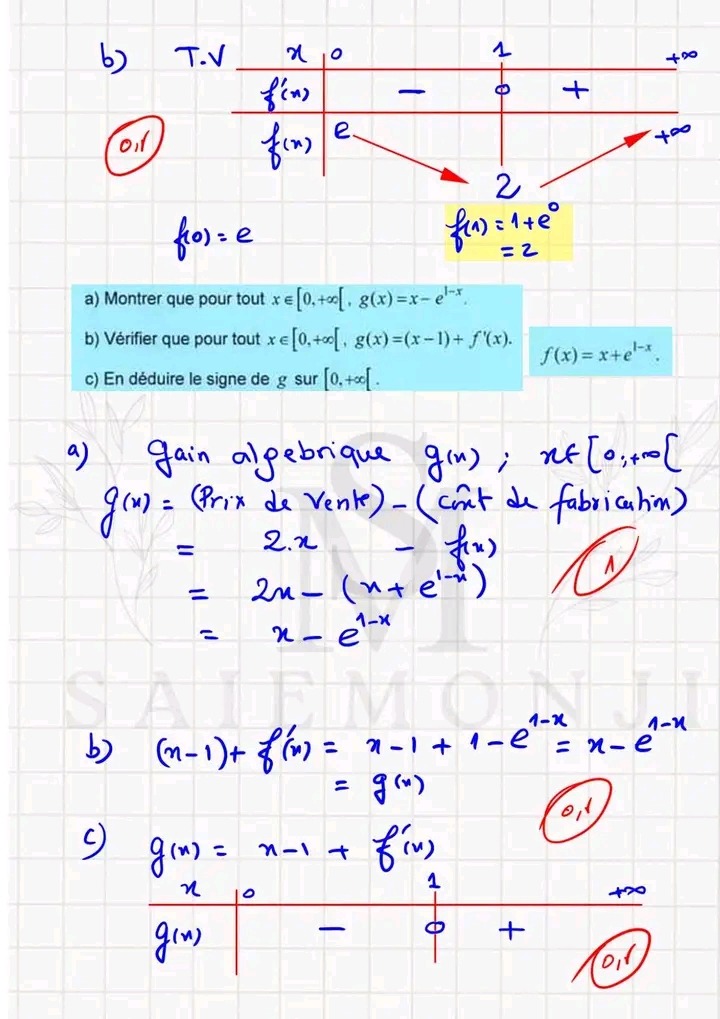 b) T.V x 0 1 +∞
f'(x) − 0 +
0,5 f(x) e 2 +∞
f(0) = e
f(1) = 1 + e⁰
= 2
a) Montrer que pour tout x ∈ [0,+∞[, g(x) = x − e^{1−x}.
b) Vérifier que pour tout x ∈ [0,+∞[, g(x) = (x−1) + f'(x).
f(x) = x + e^{1−x}.
c) En déduire le signe de g sur [0,+∞[.
a) Gain algebrique g(x) ; x ∈ [0,+∞[
g(x) = (Prix de vente) − (coût de fabrication)
= 2.x − f(x)
= 2x − (x + e^{1−x})
1
= x − e^{1−x}
SM
SAIEMONJI
b) (x−1) + f'(x) = x−1 + 1−e^{1−x} = x − e^{1−x}
= g(x)
0,5
c) g(x) = x−1 + f'(x)
x 0 1 +∞
g(x) − 0 +
0,5